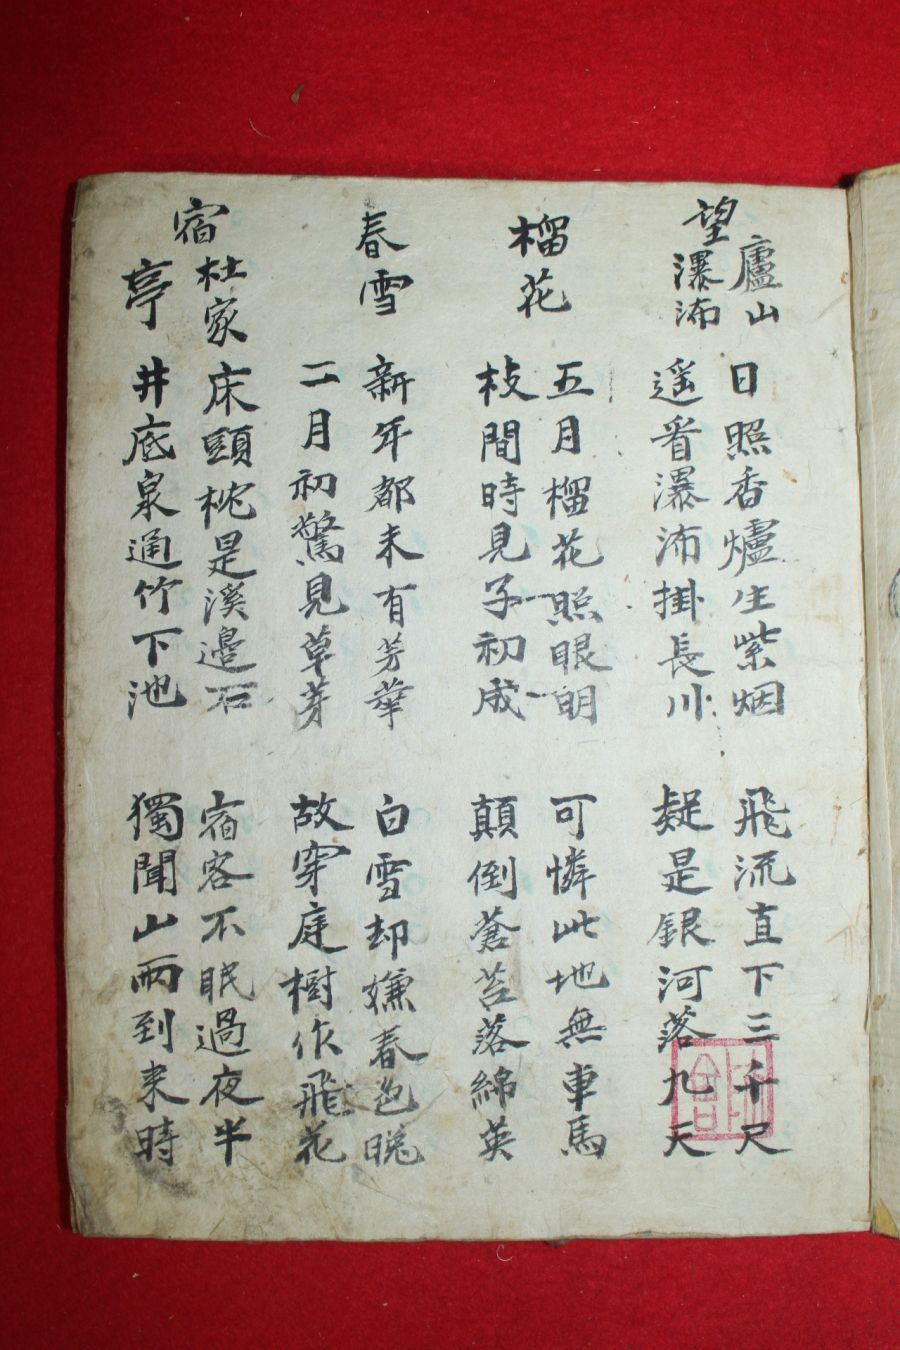 望廬山瀑沛
日照香爐生紫烟
遥看瀑沛掛長川
飛流直下三千尺
疑是銀河落九天
榴花
五月榴花照眼明
枝間時見子初成
可憐此地無車馬
顛倒蒼苔落綿英
春雪
新年都未有芳華
二月初驚見草芽
白雪却嫌春色晩
故穿庭樹作飛花
宿杜家亭
床頭枕是溪邉石
井底泉通竹下池
宿客不眠過夜半
獨聞山雨到来時